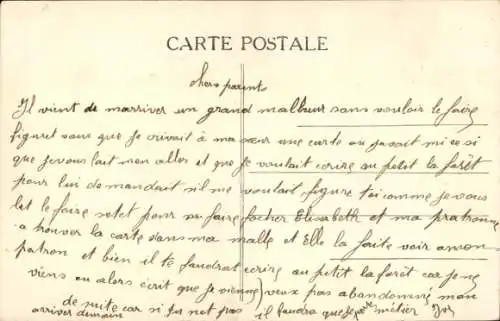 CARTE POSTALE
chers parents
Il vient de marriver un grand malheur sans vouloir le faire
figuret vous que je crivait à ma sœur une carte ou javait mi ce si
que je vous lait mon aller et que je voulait ecrire au petit la forêt
pour lui demandait sil me voulait, figure toi comme je vous
let le faire setet pour sa faire facher Elisabeth et ma patronne
a trouver la carte dans ma malle et Elle la faite voir a mon
patron et bien il te faudrat ecrire au petit la forêt car je ne
viens ou alors ecrit que je vienne) veux pas abandonné mon
de suite car si tu net pas il faudra que je métier
arriver demain